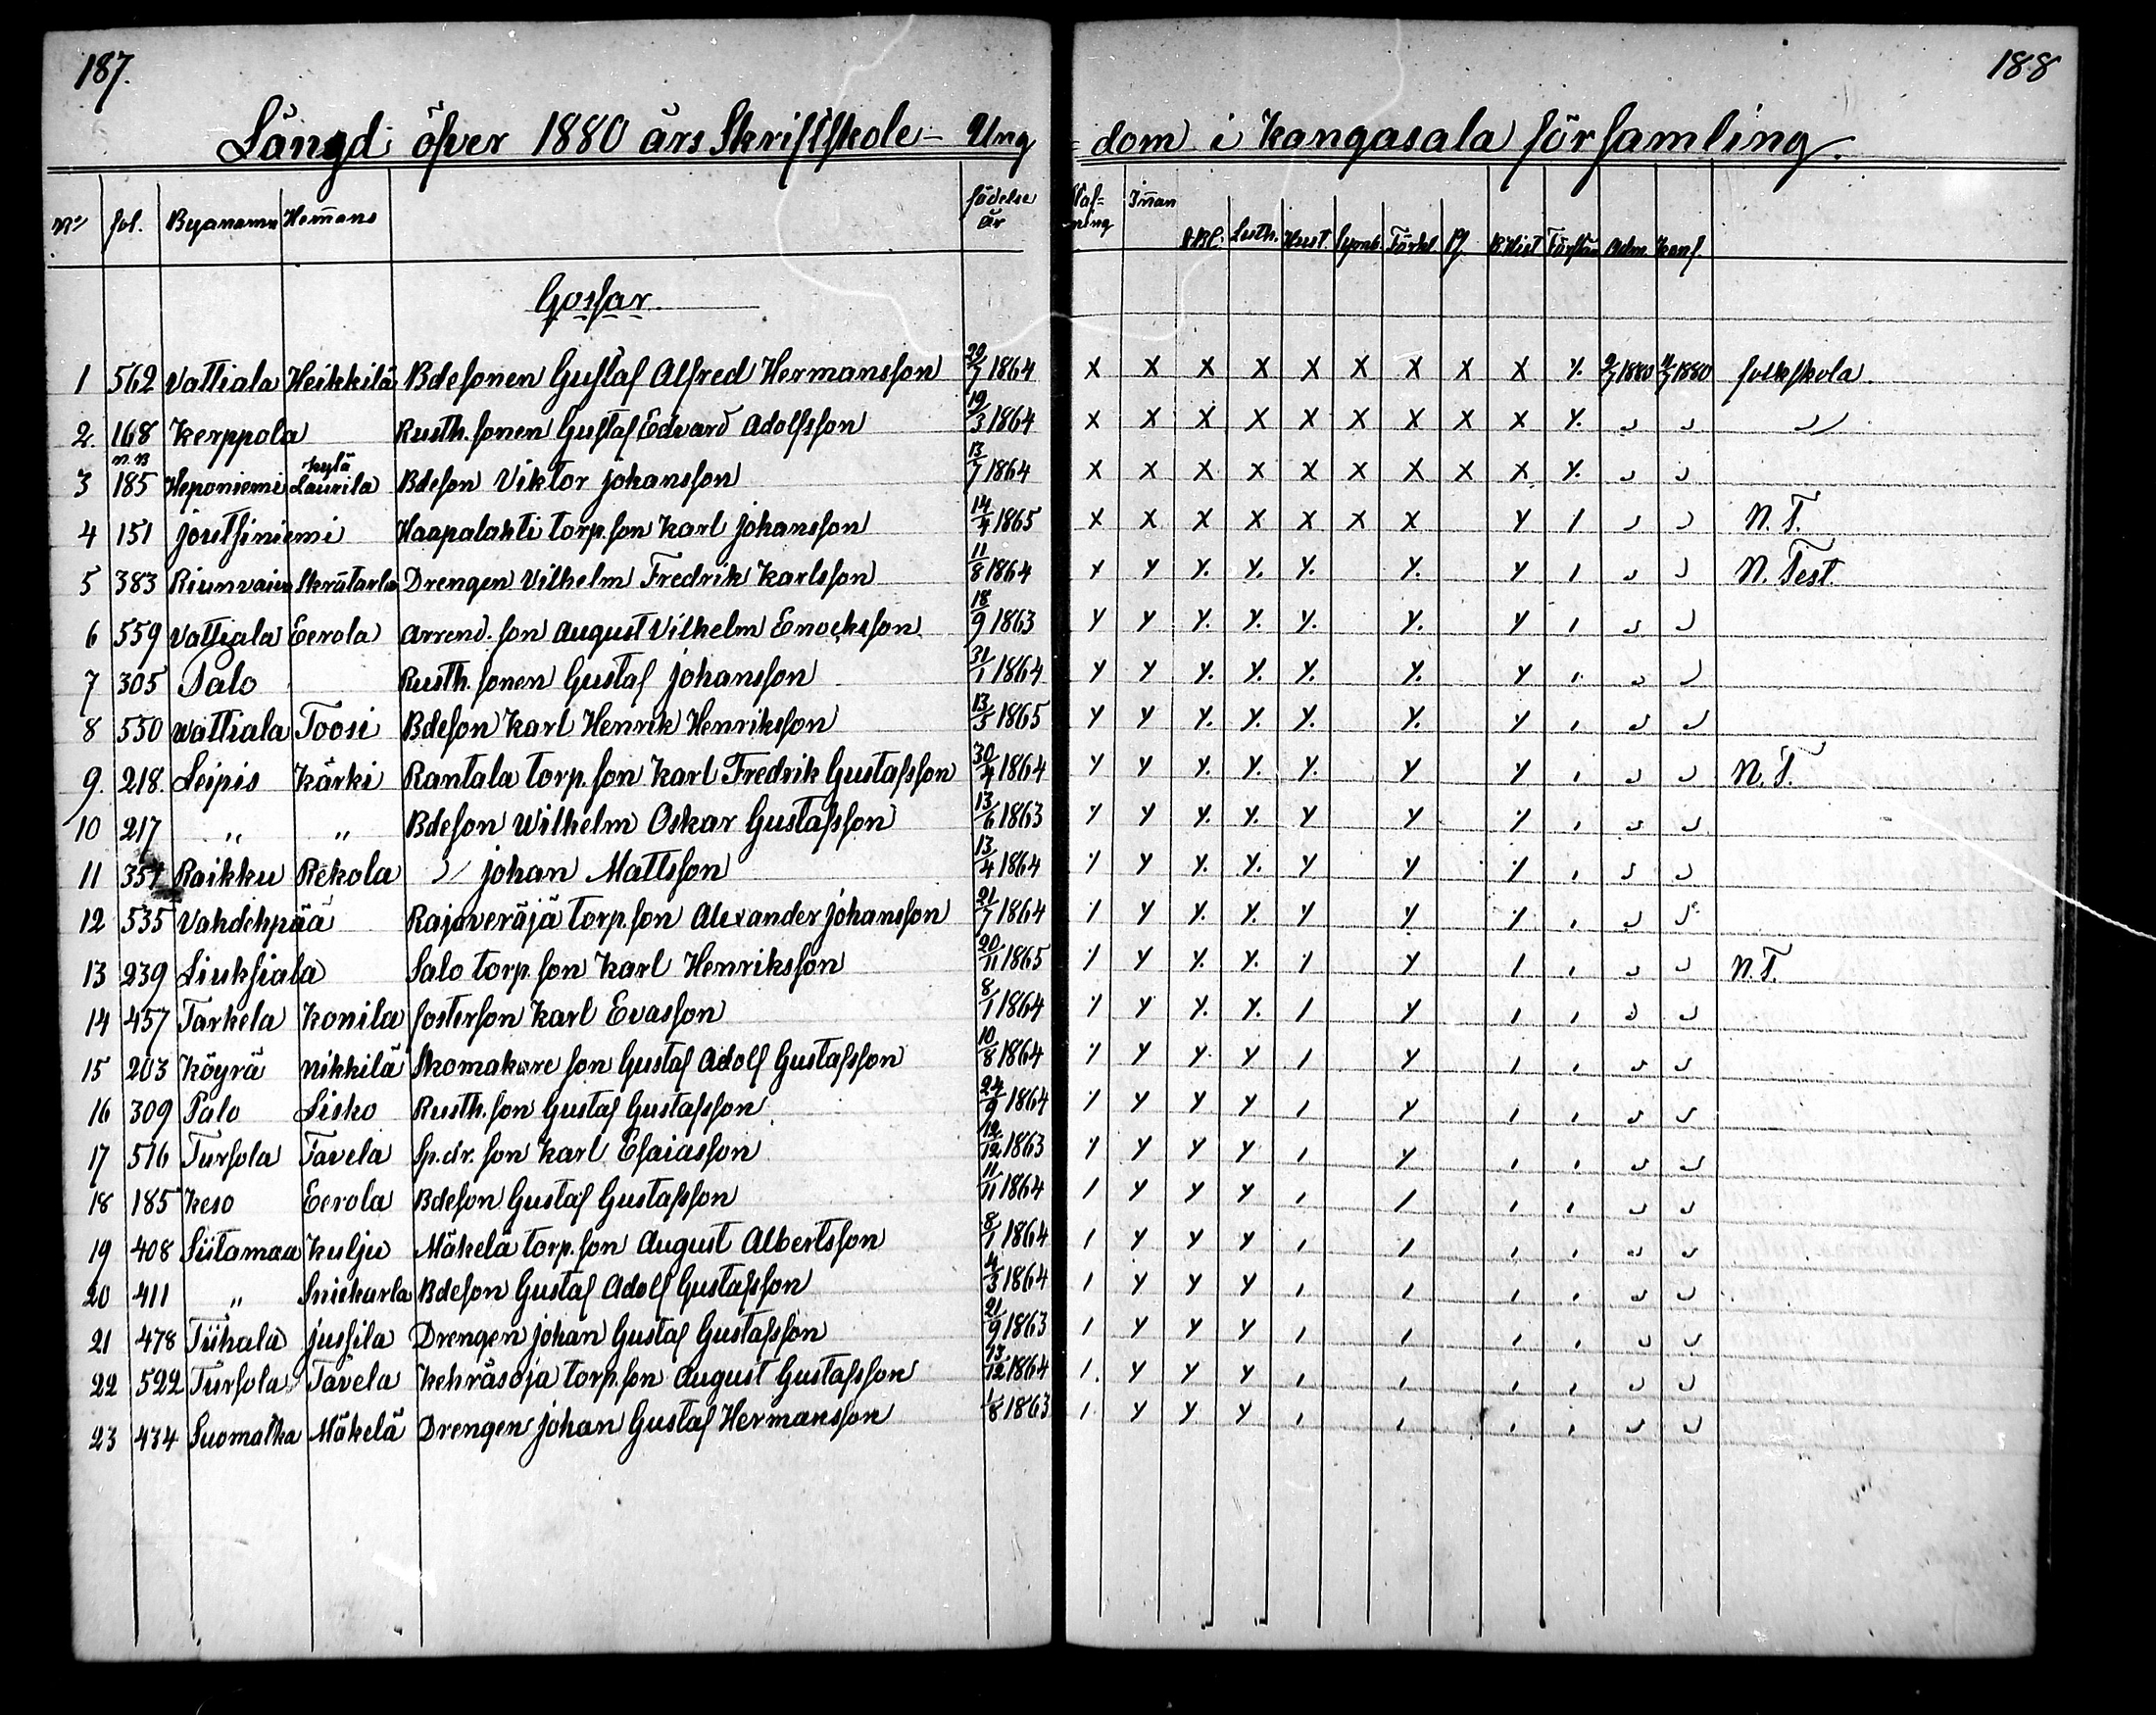 187.
188
Längd öfver 1880 års Skriftskole- Ung = dom i Kangasala församling.
No fol. Bynamn Hemans födelse år Stafning Innan ABC. Luth. Hust. Symb. Förkl. Pf. B.Hist. Förstån Adm. Konf.
Gossar
1 562 Vattiala Heikkilä Bdesonen Gustaf Alfred Hermansson 29/7 1864 X X X X X X X X X Y. 9/7 1880 11/7 1880 folkskola.
2. 168 Kerppola Rusth. sonen Gustaf Edvard Adolfsson 19/3 1864 X X X X X X X X X Y. " " "
3 n. B 185 Heponiemi kylä Laurila Bdeson Viktor Johansson 13/7 1864 X X X X X X X X X Y. " "
4 151 Joutsiniemi Haapalahti torp.son Karl Johansson 14/4 1865 X X X X X X X Y / " " N. T.
5 383 Riunvaiva Drengen Vilhelm Fredrik Karlsson 11/8 1864 Y Y Y. Y. Y. Y. Y / " " N. Test.
6 559 Vattiala Eerola Arrend. son August Vilhelm Enocksson 18/9 1863 Y Y Y. Y. Y. Y. Y / " "
7 305 Palo Rusth. sonen Gustaf Johansson 31/1 1864 Y Y Y. Y. Y. Y. Y / " "
8 550 Wattiala Toosi Bdeson Karl Henrik Henriksson 13/5 1865 Y Y Y. Y. Y. Y. Y / " "
9. 218. Leipis Kärki Rantala torp. son Karl Fredrik Gustafsson 30/4 1864 Y Y Y. Y. Y. Y Y / " " N. T.
10 217 " " Bdeson Wilhelm Oskar Gustafsson 13/6 1863 Y Y Y. Y. Y Y Y / " "
11 354 Raikku Rekola " Johan Mattsson 13/4 1864 Y Y Y. Y. Y Y Y / " "
12 535 Vahdehpää Rajaveräjä torp.son Alexander Johansson 21/7 1864 / Y Y. Y. Y Y Y / " "
13 239 Liuksiala Salo torp. son Karl Henriksson 20/11 1865 Y Y Y. Y. / Y / / " " N. T.
14 457 Tarkela Konila fosterson Karl Evasson 8/1 1864 Y Y Y. Y. / Y / / " "
15 203 Köyrä Nikkilä Skomakare son Gustaf Adolf Gustafsson 10/8 1864 Y Y Y. Y / Y / / " "
16 309 Palo Lisko Rusth. son Gustaf Gustafsson 24/9 1864 Y Y Y Y / Y / / " "
17 516 Tursola Tavela Sp.dr. son Karl Esaiasson 12/12 1863 Y Y Y Y / Y / / " "
18 185 Keso Eerola Bdeson Gustaf Gustafsson 11/11 1864 / Y Y Y / / / / " "
19 408 Siitamaa Kulju Mäkelä torp. son August Albertsson 8/1 1864 / Y Y Y / / / / " "
20 411 " Sniekarla Bdeson Gustaf Adolf Gustafsson 4/3 1864 / Y Y Y / / / / " "
21 478 Tiihala Jussila Drengen Johan Gustaf Gustafsson 21/9 1863 / Y Y Y / / / / " "
22 522 Tursola Tavela Kehräsoja torp.son August Gustafsson 13/12 1864 /. Y Y Y / / / / " "
23 434 Suomatka Mäkelä Drengen Johan Gustaf Hermansson 1/8 1863 / Y Y Y / / / / " "